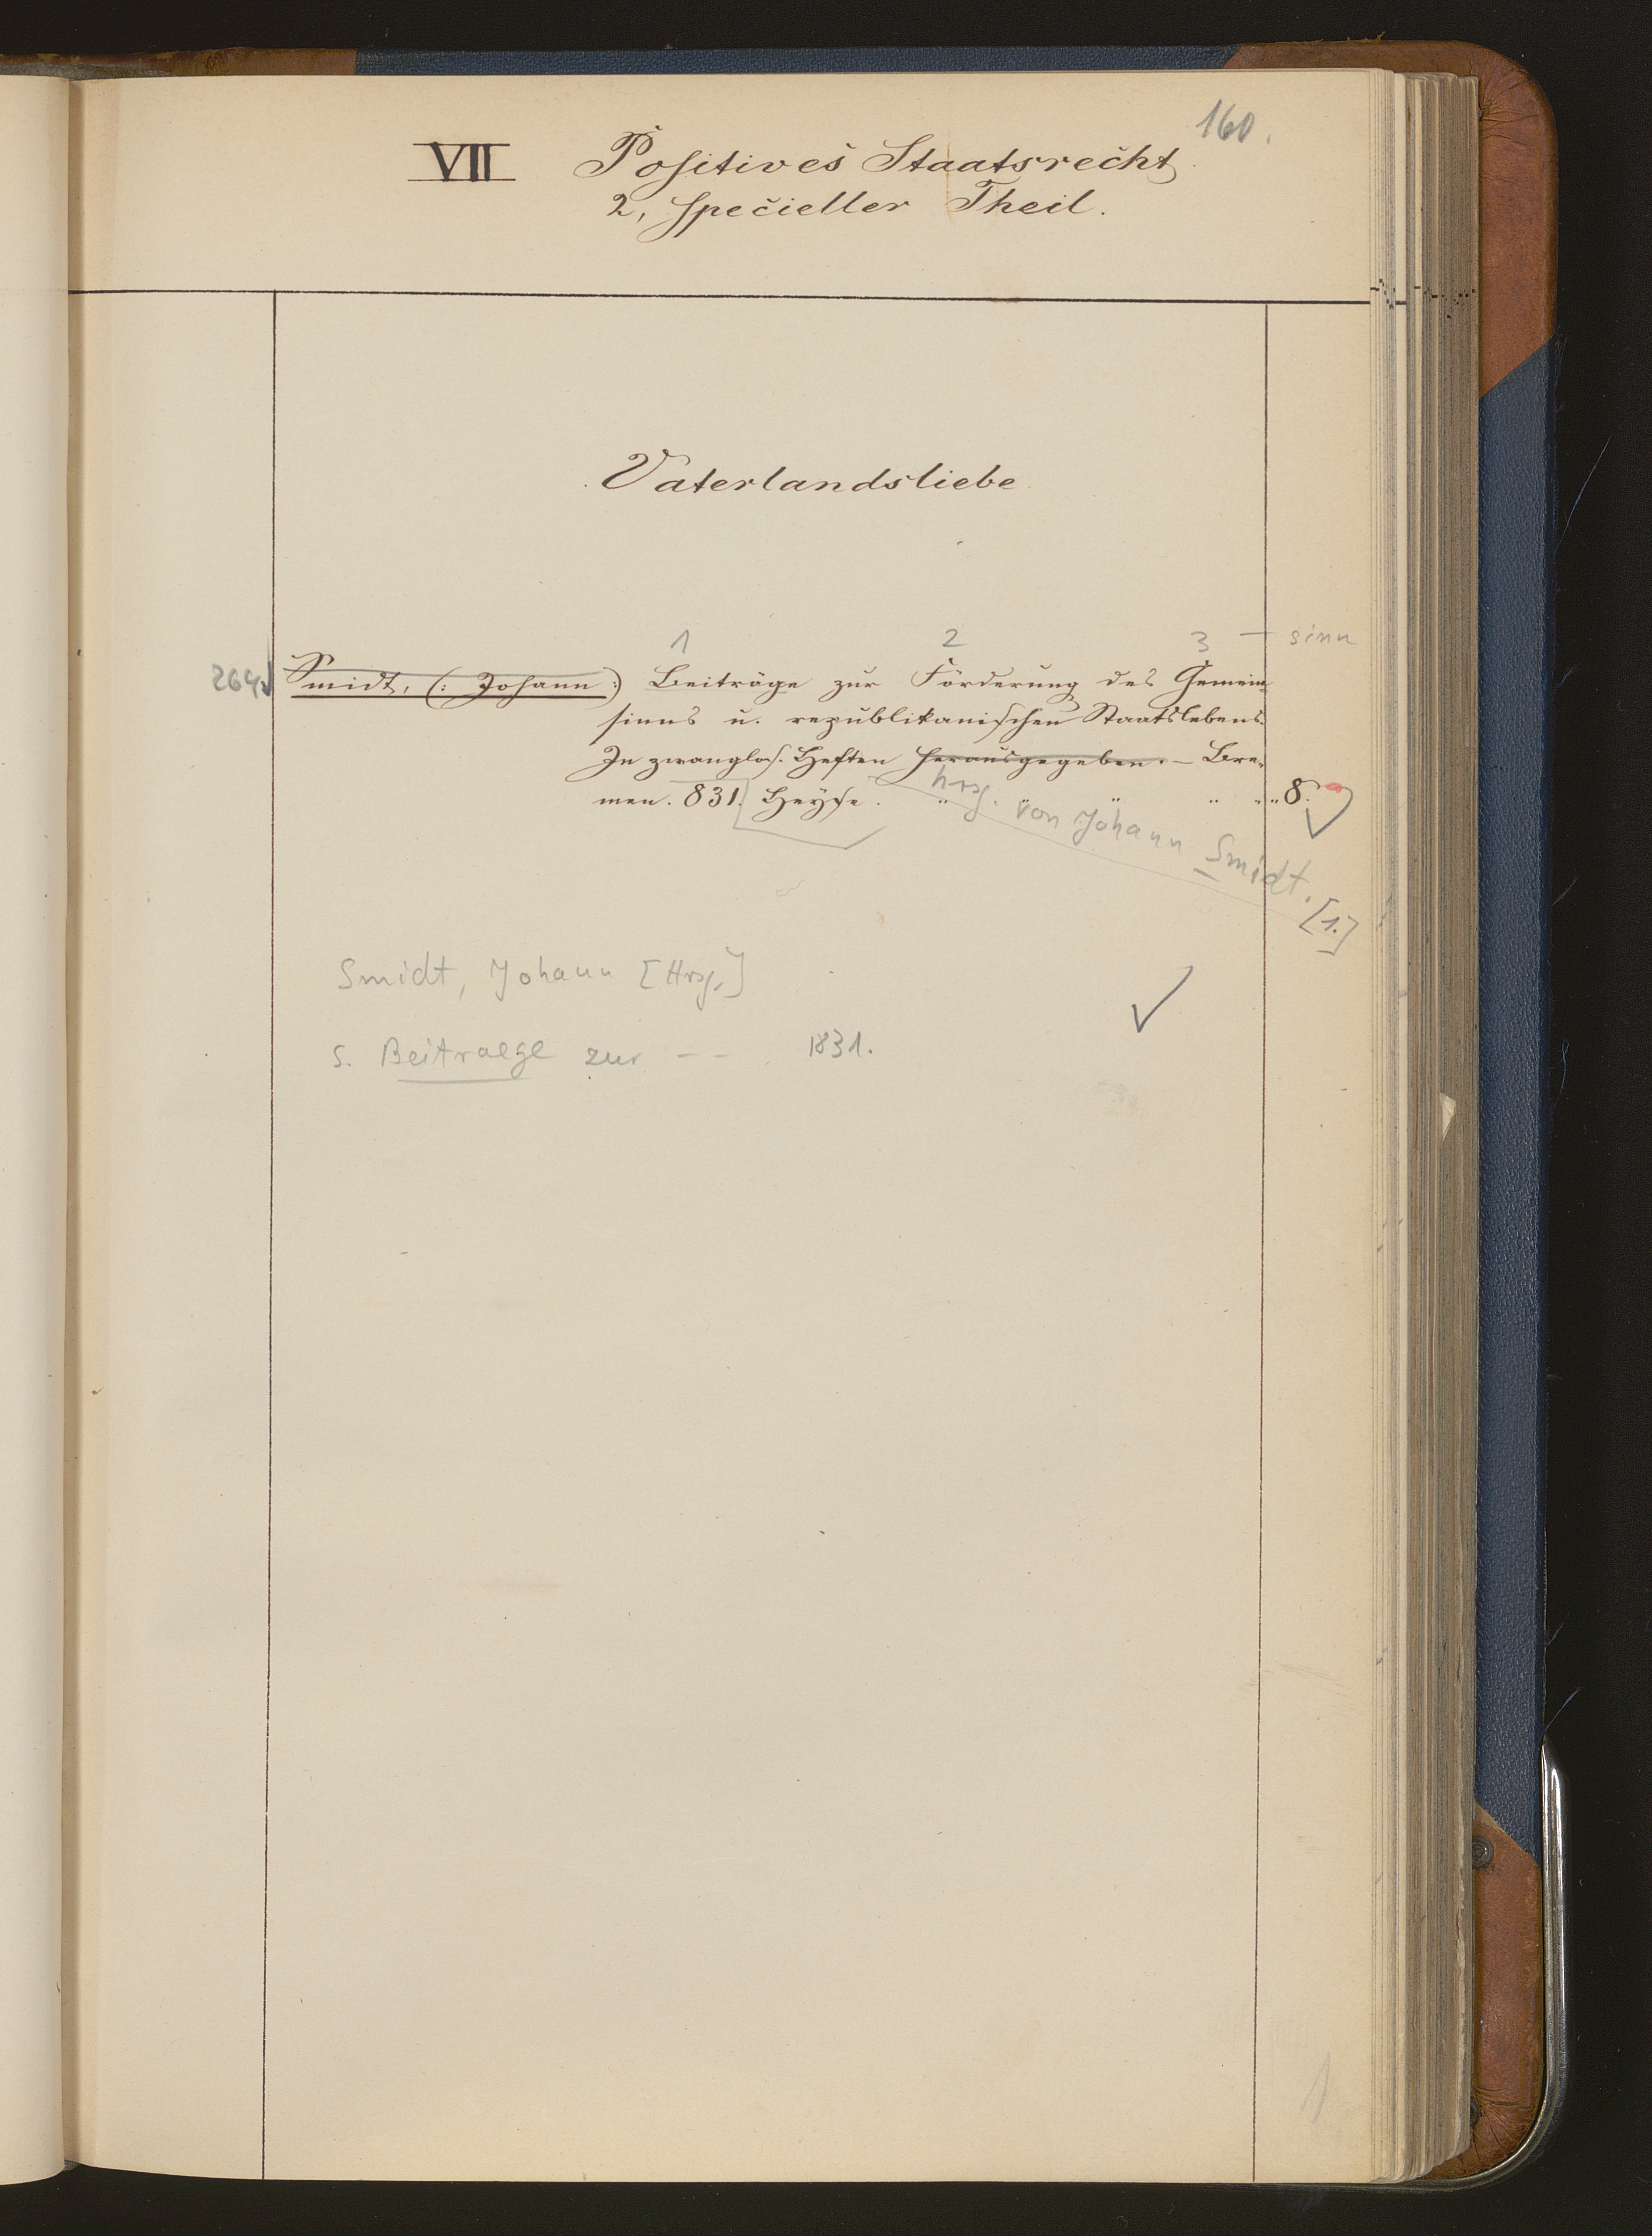 160.
VII Positives Staatsrecht
2, specieller Theil.
Vaterlandsliebe
1 2 3 — sinn
264 Smidt, (: Johann :) Beiträge zur Förderung des Gemein-
sinns u. republikanischen Staatslebens.
In zwanglos. Heften herausgegeben. — Bre-
men. 831. Heyse. " " " " " 8.
hrsg. von Johann Smidt. [1.]
Smidt, Johann [Hrsg.]
s. Beitraege zur – – 1831.
1